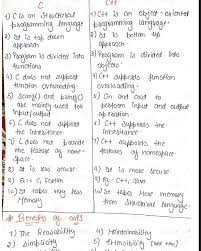 C
1) C is an Structural
programming language
2) It is top down
approach
3) Program is divided into
functions
4) C does not support
function overloading
5) scanf() and printf()
are mainly used for
input/output
6) C does not support
the inheritance
7) C does not provide
the feature of name-
space
8) It is less secure
9) Eg:- C, Fortran
10) It takes very less
Memory
C++
1) C++ is an object-oriented
programming language
2) It is bottom up
approach
3) Program is divided into
objects
4) C++ supports function
overloading
5) Cin and cout to
perform input and output
operation
6) C++ supports the
Inheritance
7) C++ supports the
features of namespace
8) It is more secure
9) Eg:- C++, Java
10) It takes more memory
than Structural language
# Benefits of OOPs
1) The Reusability
2) Simplicity
4) Maintainability